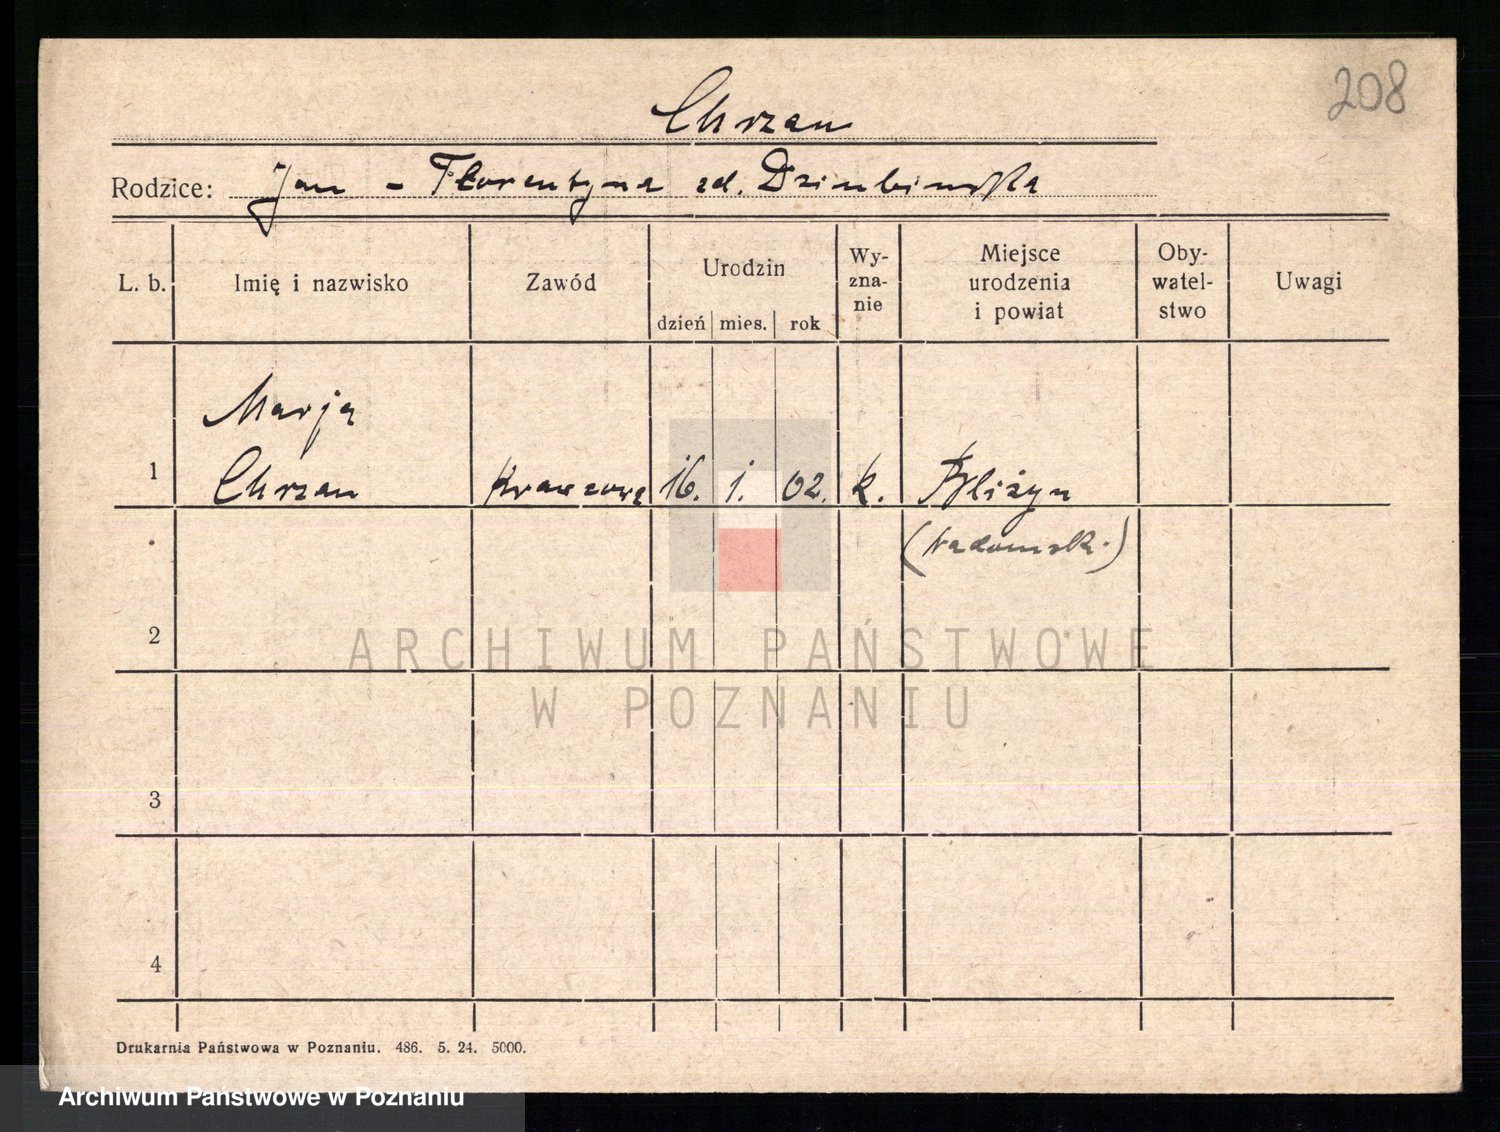 208
Chrzan
Rodzice: Jan - Florentyna zd. Dziubińska
L. b. Imię i nazwisko Zawód Urodzin dzień mies. rok Wy-zna-nie Miejsce urodzenia i powiat Oby-watel-stwo Uwagi
Marja
1 Chrzan Krawcowa 16. 1. 02. k. Bliżyn
(Radomsk.)
2
3
4
ARCHIWUM PAŃSTWOWE
W POZNANIU
Drukarnia Państwowa w Poznaniu. 486. 5. 24. 5000.
Archiwum Państwowe w Poznaniu